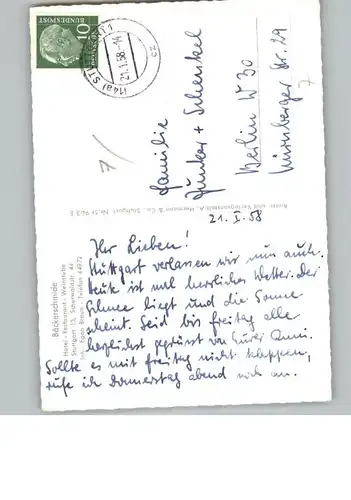 10
DEUTSCHE
BUNDESPOST
(14a) STUTTG
21.1.58.-14
cz
7/
Familie
Junker + Schenkel
Berlin W 30
Nürnberger Str. 19
7
Kunst- und Verlagsanstalt A. Hermann & Co. Stuttgart Nr. St
21. I. 58
Ihr Lieben!
Stuttgart verlassen wir nun auch.
Heute ist mal herrliches Wetter. Der
Schnee liegt und die Sonne
scheint. Seid bis Freitag alle
herzlichst gegrüsst von Eurer
Sollte es mit Freitag nicht klappen,
rufe ich Donnerstag abend noch an.
Bäckerschmide
Hotel - Restaurant - Weinstube
Stuttgart 13, Schurwaldstr. 44
Inh.: Egon Braun - Telefon 44972